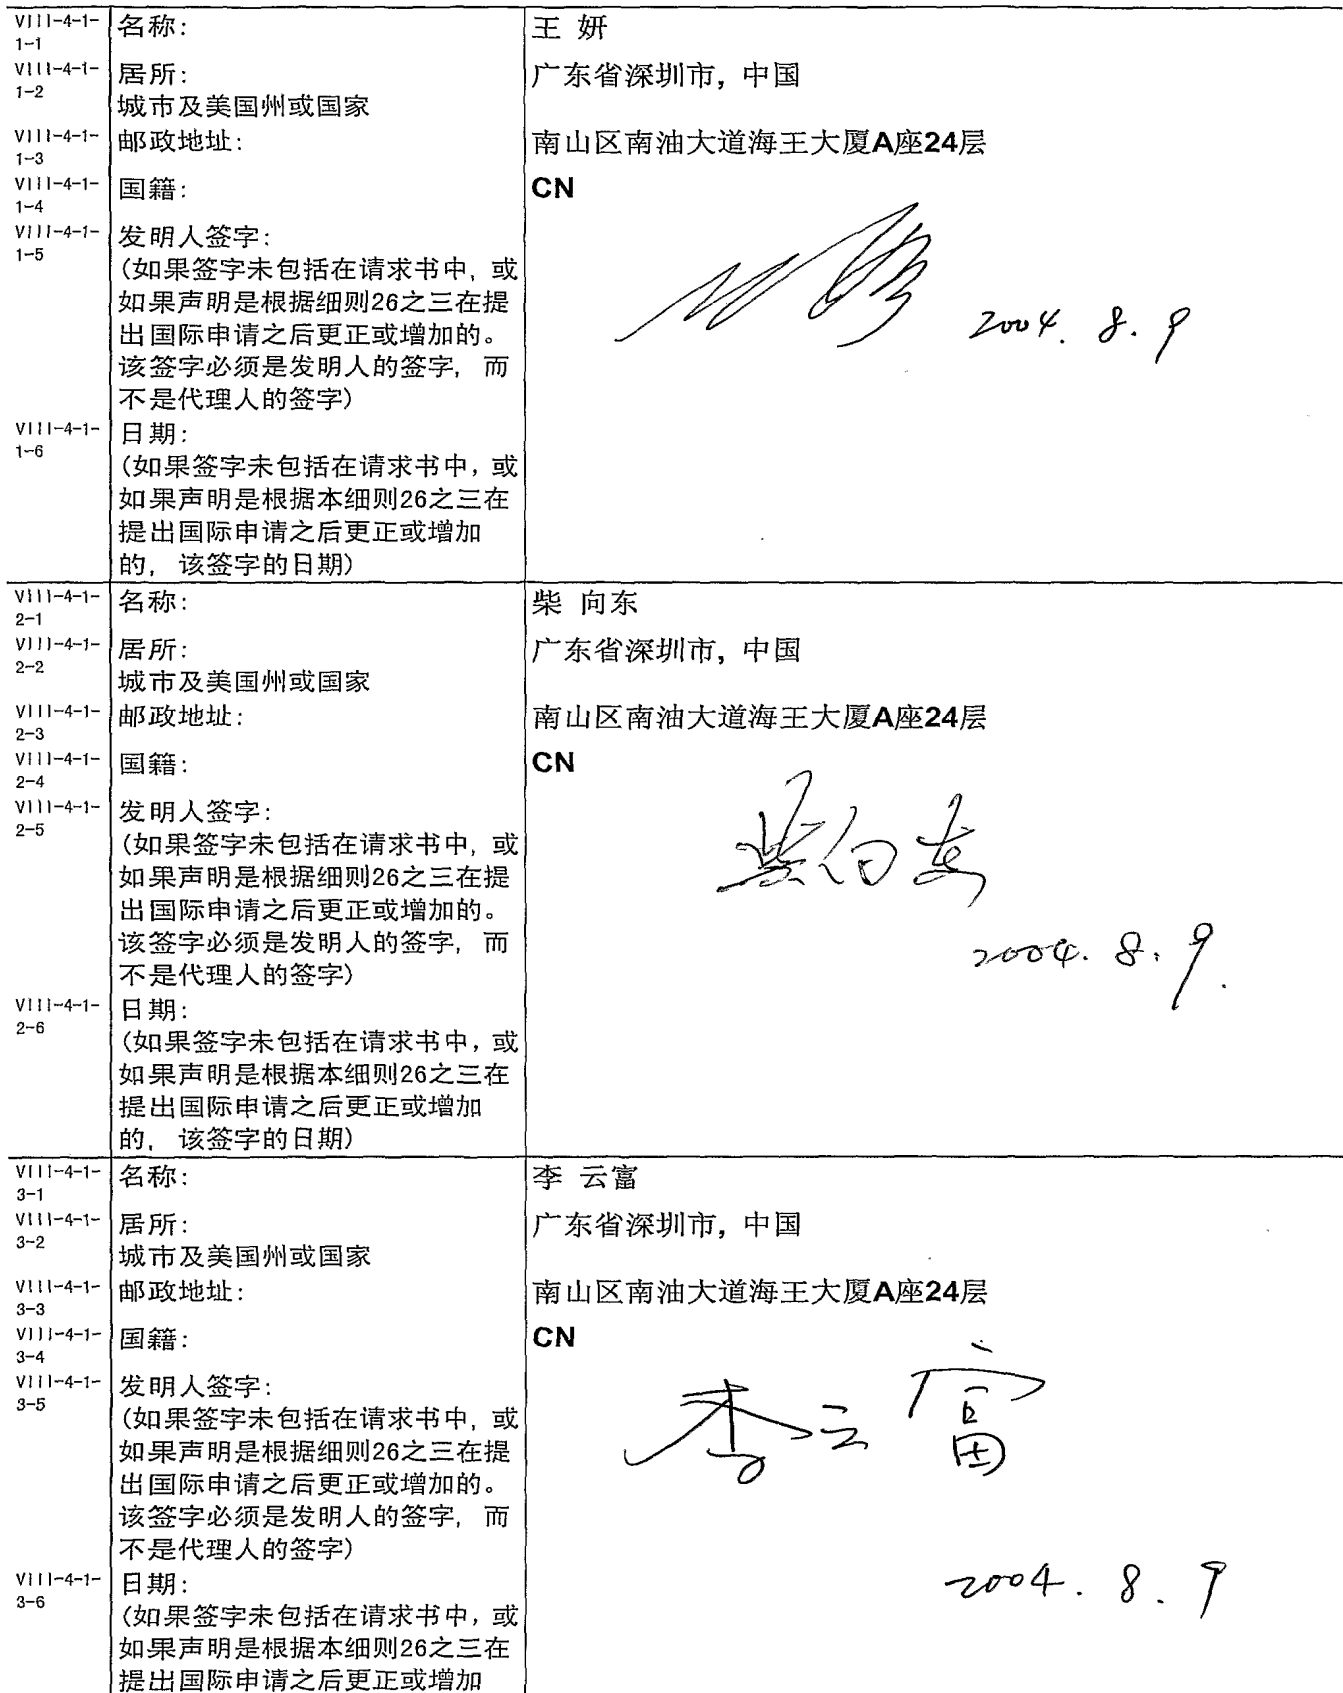 VIII-4-1-1-1 名称: 王 妍
VIII-4-1-1-2 居所: 广东省深圳市, 中国
城市及美国州或国家
VIII-4-1-1-3 邮政地址: 南山区南油大道海王大厦A座24层
VIII-4-1-1-4 国籍: CN
VIII-4-1-1-5 发明人签字:
(如果签字未包括在请求书中, 或
如果声明是根据细则26之三在提
出国际申请之后更正或增加的。
该签字必须是发明人的签字, 而
不是代理人的签字)
2004. 8. 9
VIII-4-1-1-6 日期:
(如果签字未包括在请求书中, 或
如果声明是根据本细则26之三在
提出国际申请之后更正或增加
的, 该签字的日期)
VIII-4-1-2-1 名称: 柴 向东
VIII-4-1-2-2 居所: 广东省深圳市, 中国
城市及美国州或国家
VIII-4-1-2-3 邮政地址: 南山区南油大道海王大厦A座24层
VIII-4-1-2-4 国籍: CN
VIII-4-1-2-5 发明人签字: 柴向东
(如果签字未包括在请求书中, 或
如果声明是根据细则26之三在提
出国际申请之后更正或增加的。
该签字必须是发明人的签字, 而
不是代理人的签字)
2004. 8. 9.
VIII-4-1-2-6 日期:
(如果签字未包括在请求书中, 或
如果声明是根据本细则26之三在
提出国际申请之后更正或增加
的, 该签字的日期)
VIII-4-1-3-1 名称: 李 云富
VIII-4-1-3-2 居所: 广东省深圳市, 中国
城市及美国州或国家
VIII-4-1-3-3 邮政地址: 南山区南油大道海王大厦A座24层
VIII-4-1-3-4 国籍: CN
VIII-4-1-3-5 发明人签字: 李云富
(如果签字未包括在请求书中, 或
如果声明是根据细则26之三在提
出国际申请之后更正或增加的。
该签字必须是发明人的签字, 而
不是代理人的签字)
VIII-4-1-3-6 日期: 2004. 8. 9
(如果签字未包括在请求书中, 或
如果声明是根据本细则26之三在
提出国际申请之后更正或增加